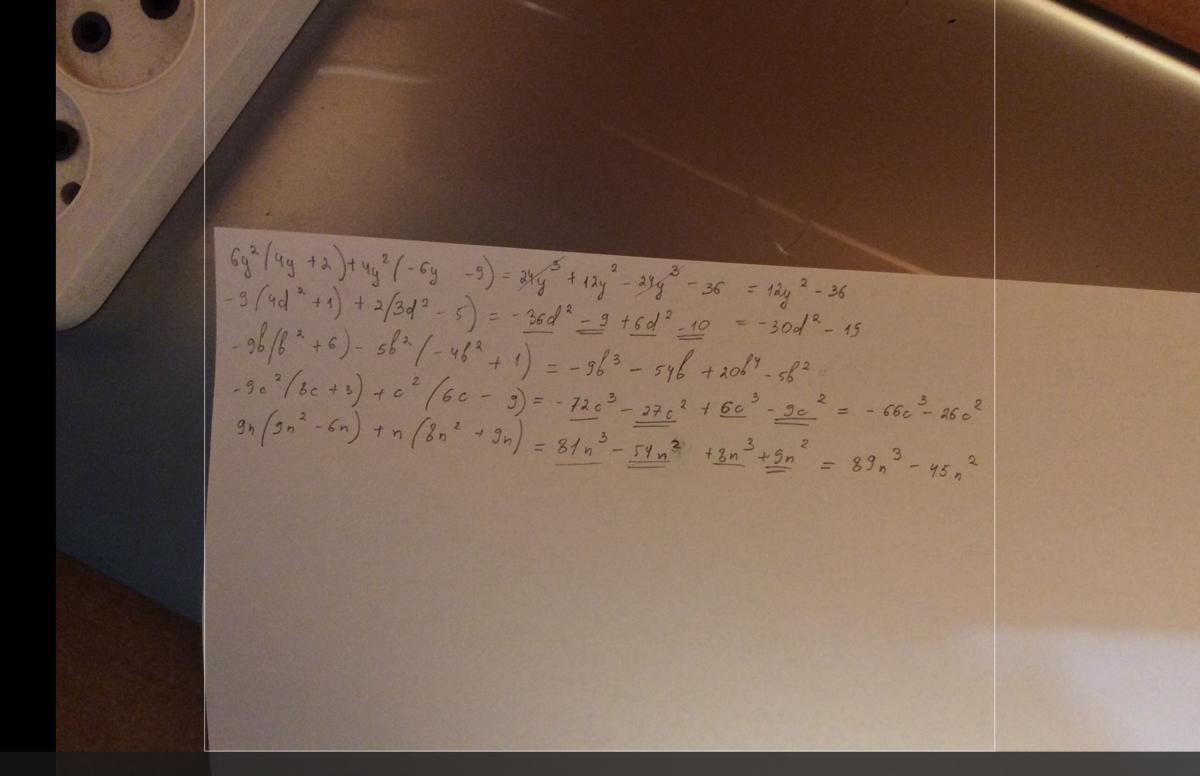 6y²(4y + 2) + 4y²(-6y - 9) = 24y³ + 12y² - 24y³ - 36 = 12y² - 36
-9(4d² + 1) + 2(3d² - 5) = -36d² - 9 + 6d² - 10 = -30d² - 19
-9b(b² + 6) - 5b²(-4b² + 1) = -9b³ - 54b + 20b⁴ - 5b²
-9c²(8c + 3) + c²(6c - 9) = -72c³ - 27c² + 6c³ - 9c² = -66c³ - 26c²
9n(9n² - 6n) + n(8n² + 9n) = 81n³ - 54n² + 8n³ + 9n² = 89n³ - 45n²